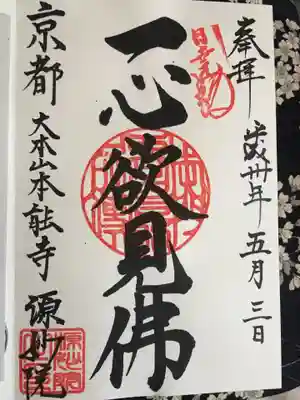 奉拝
平成卅年五月三日
一心欲見佛
京都大本山本能寺源妙院